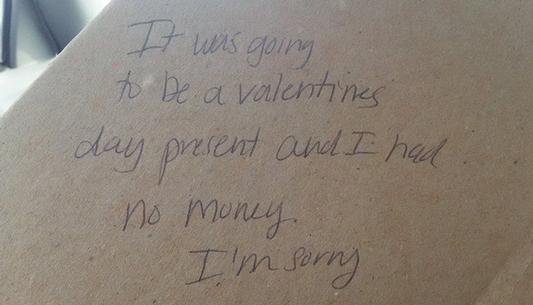 It was going
to be a valentines
day present and I had
no money.
I'm sorry